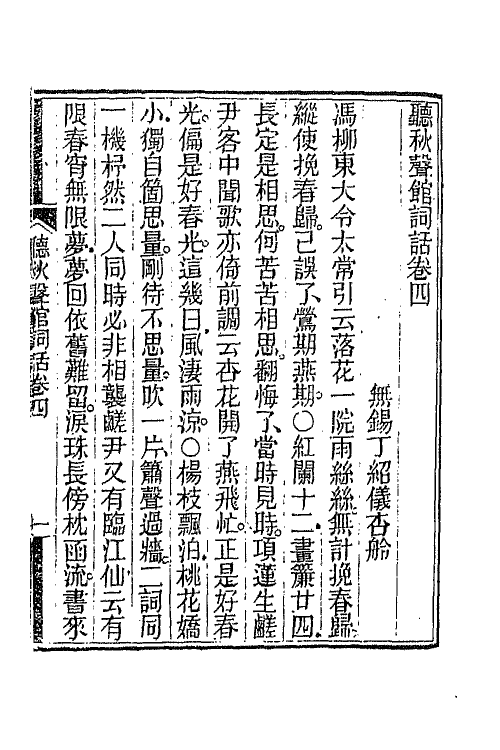 聽秋聲館詞話卷四
無錫丁紹儀杏舲
馮柳東大令太常引云落花一院雨絲絲無計挽春歸
縱使挽春歸。已誤了鶯期燕期。〇紅闌十二畫簾廿四
長定是相思。何苦苦相思。翻悔了、當時見時。項蓮生鹺
尹客中聞歌亦倚前調云杏花開了燕飛忙。正是好春
光。偏是好春光。這幾日風淒雨涼。〇楊枝飄泊桃花嬌
小獨自箇思量。剛待不思量。吹一片、簫聲過牆。二詞同
一機杼然二人同時必非相襲鹺尹又有臨江仙云有
限春宵無限夢夢回依舊難留。淚珠長傍枕函流。書來
聽秋聲館詞話卷四
一